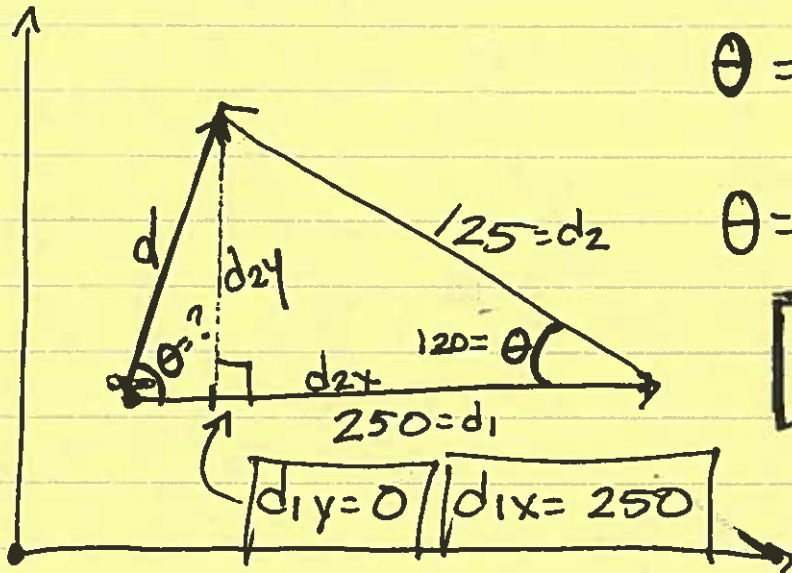 θ =
d
d2y
125 = d2
θ =
θ = ?
120 = θ
d2x
250 = d1
d1y = 0
d1x = 250